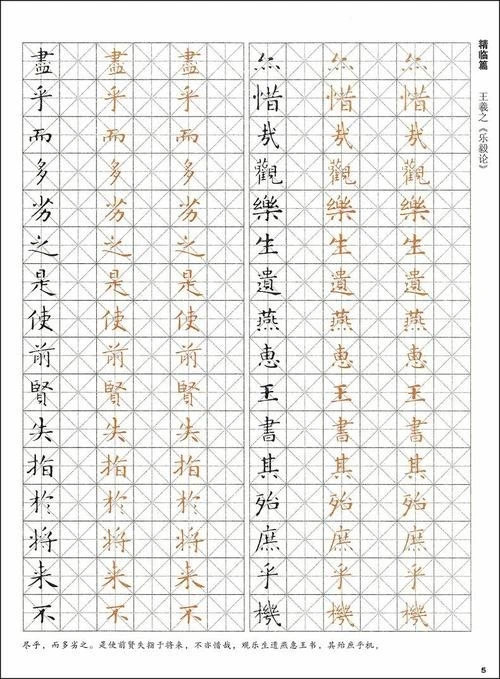 精临篇
王羲之《乐毅论》
盡乎而多劣之是使前賢失指於將來不
盡乎而多劣之是使前賢失指於將來不
盡乎而多劣之是使前賢失指於將來不
亦惜哉觀樂生遺燕惠王書其殆庶乎機
亦惜哉觀樂生遺燕惠王書其殆庶乎機
亦惜哉觀樂生遺燕惠王書其殆庶乎機
尽乎，而多劣之。是使前贤失指于将来，不亦惜哉，观乐生遗燕惠王书，其殆庶乎机，
5